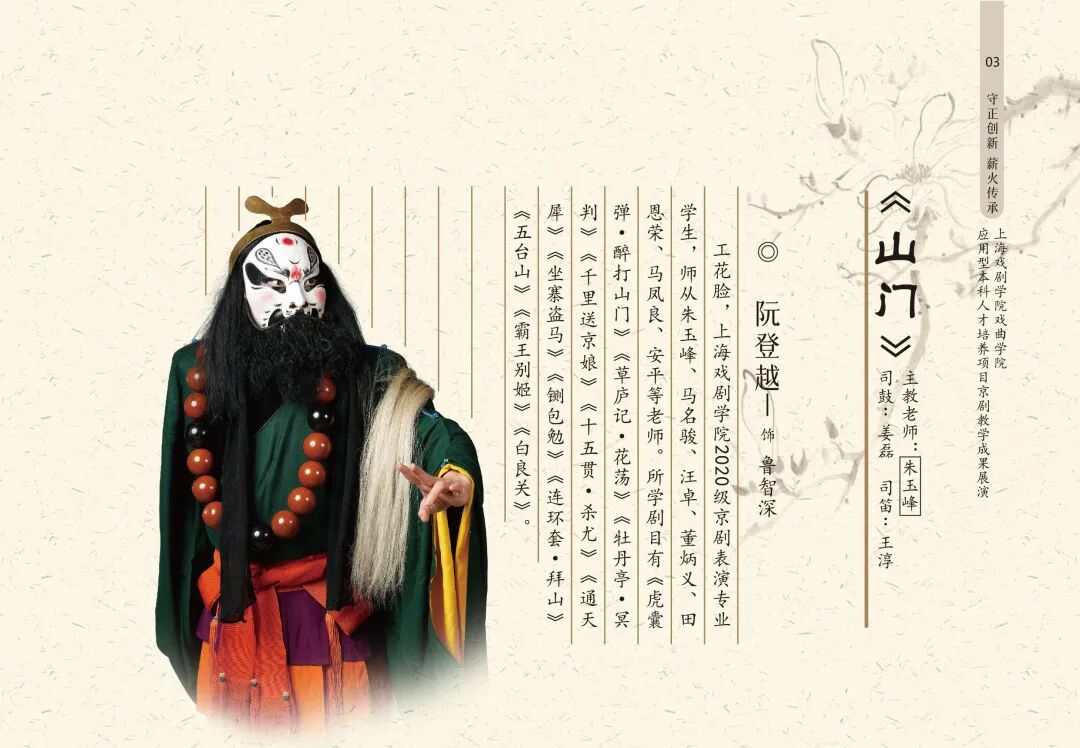 03
守正创新 薪火传承
上海戏剧学院戏曲学院
应用型本科人才培养项目京剧教学成果展演
《山门》
主教老师：朱玉峰
司鼓：姜磊 司笛：王淳
◎ 阮登越—饰 鲁智深
工花脸，上海戏剧学院2020级京剧表演专业
学生，师从朱玉峰、马名骏、汪卓、董炳义、田
恩荣、马凤良、安平等老师。所学剧目有《虎囊
弹·醉打山门》《草庐记·花荡》《牡丹亭·冥
判》《千里送京娘》《十五贯·杀尤》《通天
犀》《坐寨盗马》《铡包勉》《连环套·拜山》
《五台山》《霸王别姬》《白良关》。